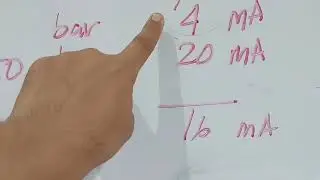 bar 4 mA
0 20 mA
16 mA